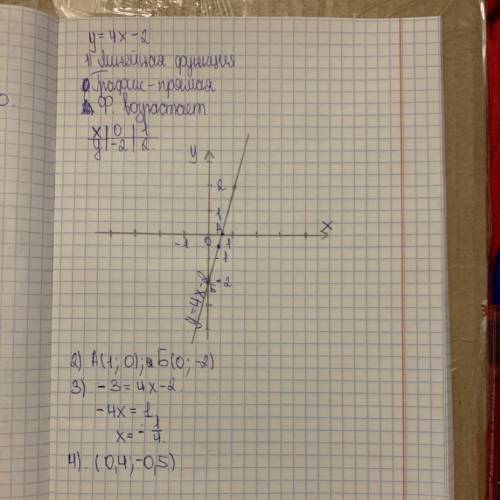 y=4x-2
1) Линейная функция
График - прямая
Ф. возрастает
x | 0 | 1
y | -2 | 2
y
2
1
A
x
-1 0 1
-1
Б -2
y=4x-2
2) A(1; 0); Б(0; -2)
3) -3=4x-2
-4x=1
x=-1/4
4). (0,4; -0,5)